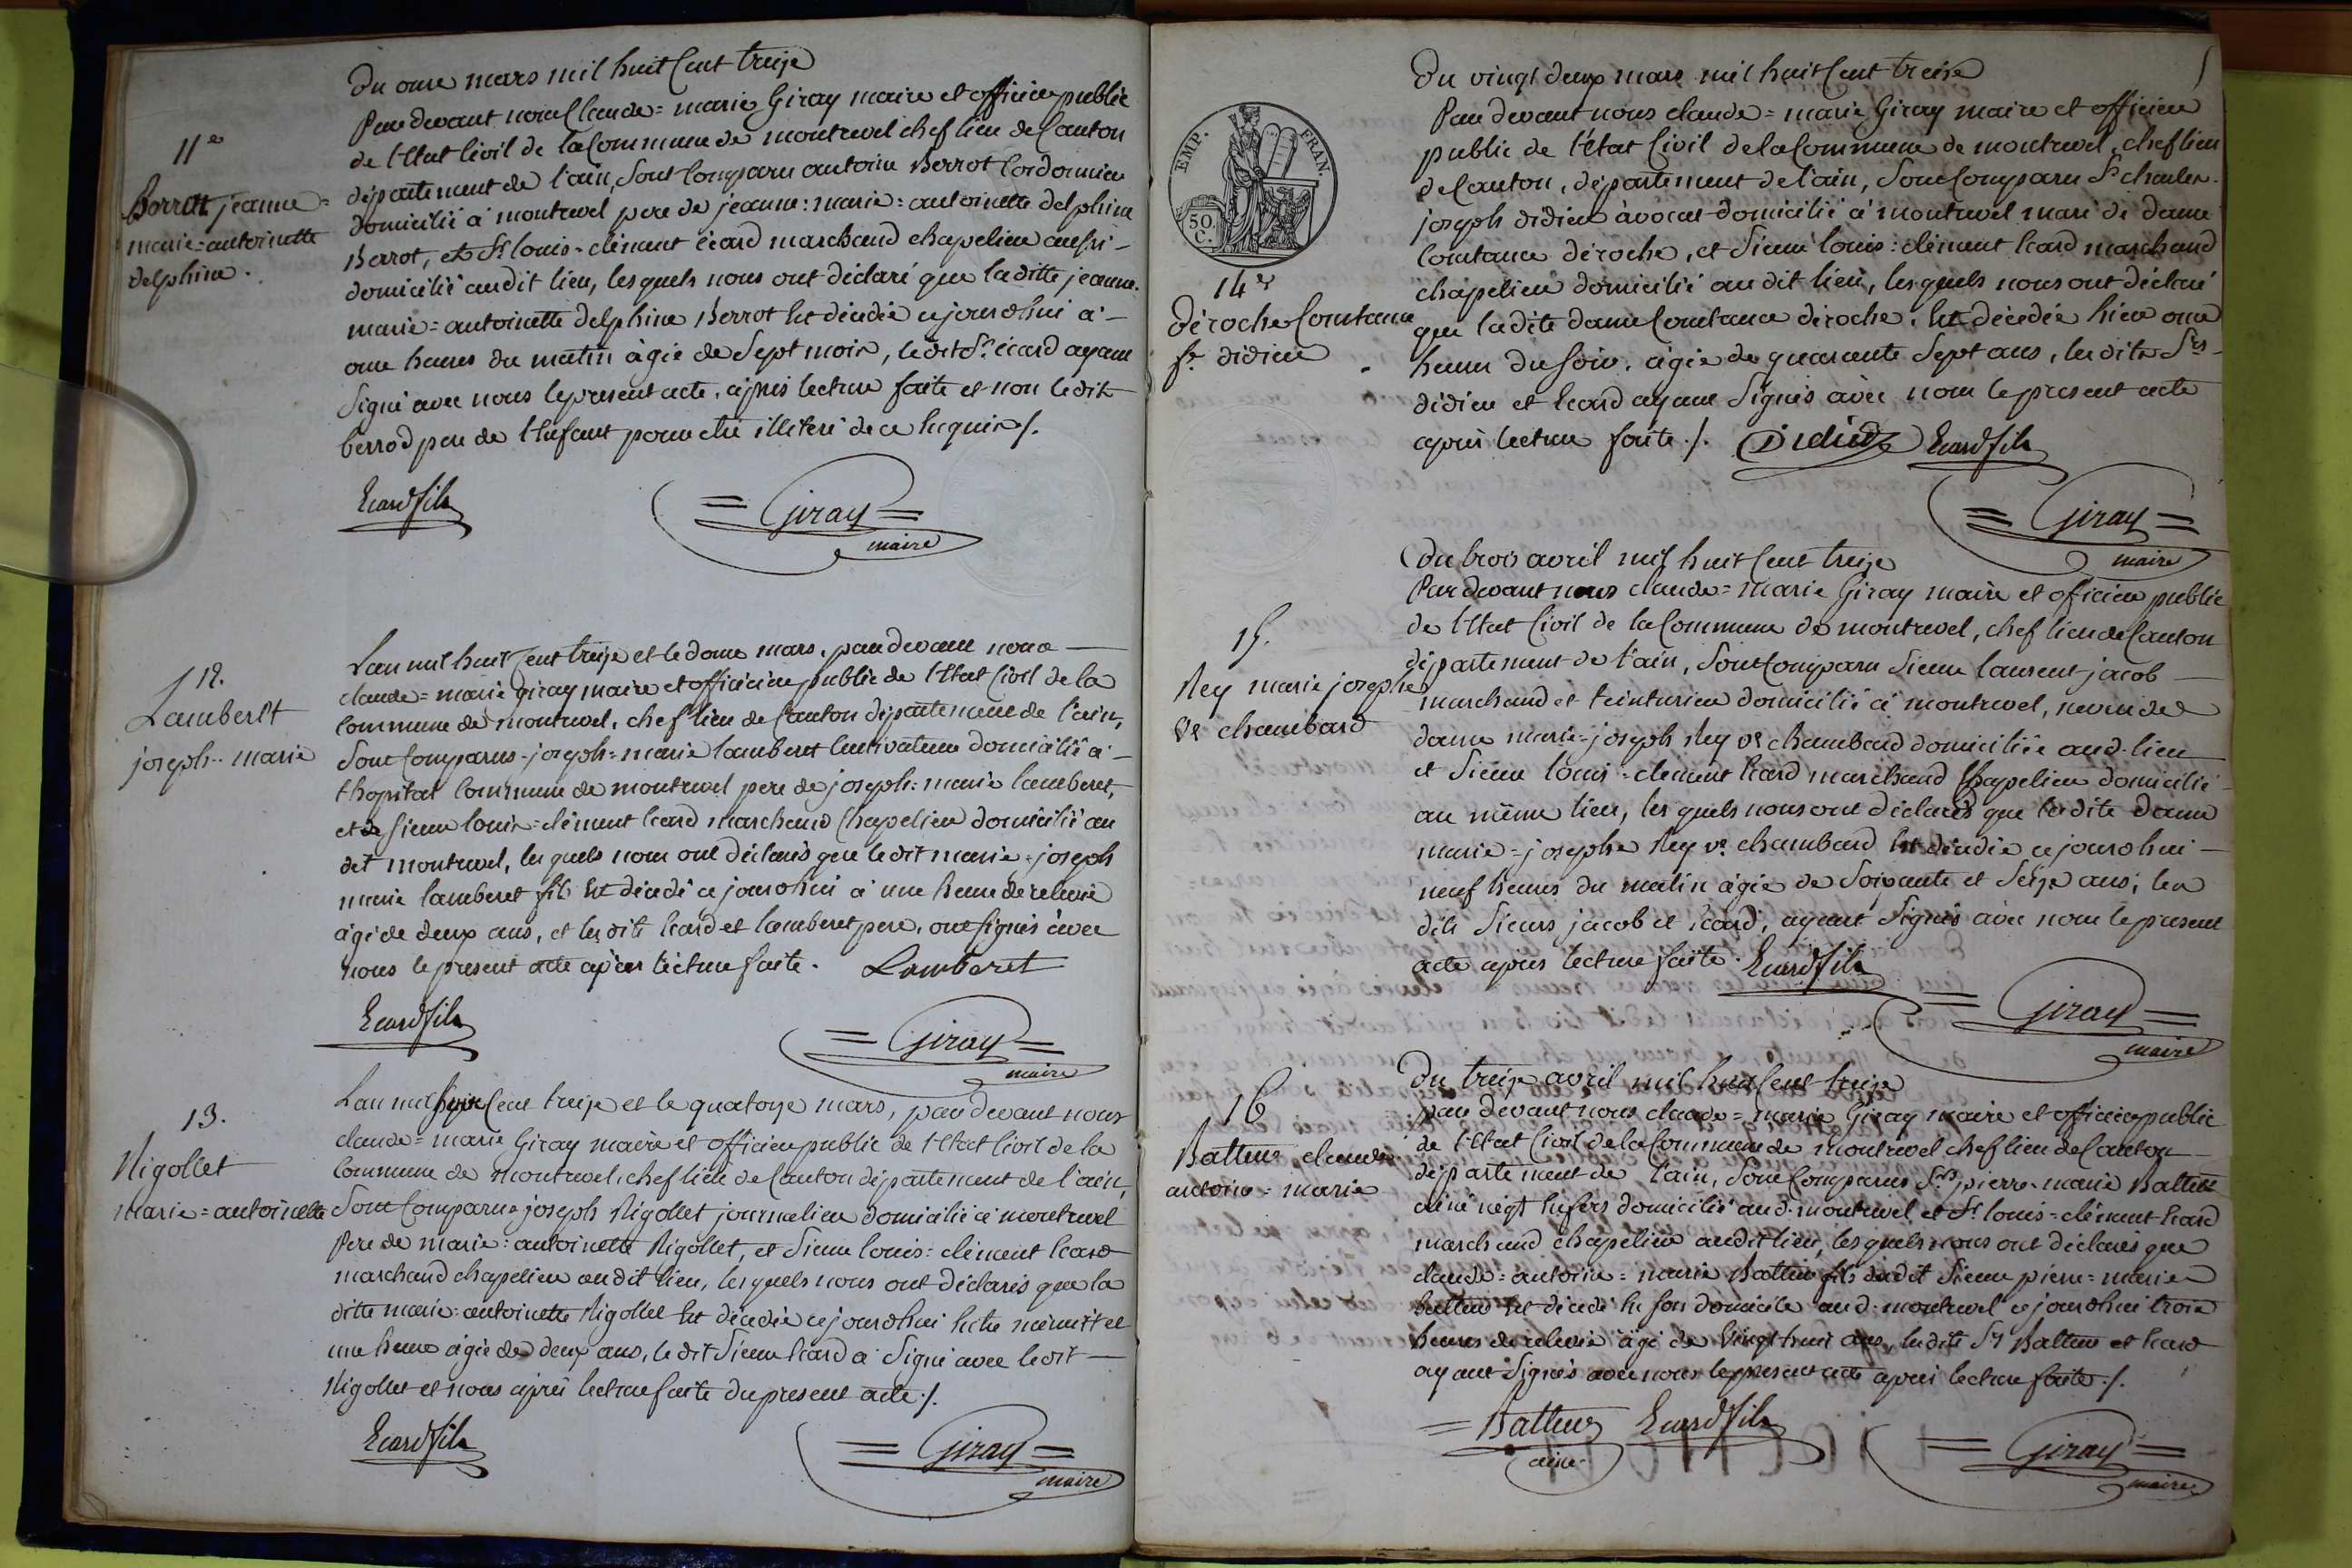 Du onze mars mil huit Cent treize
Par devant nous Claude=marie Giray maire et officier public
de l'Etat Civil de la Commune de montrevel chef lieu de Canton
département de l'ain, Sont Comparu antoine Berrot Cordonnier
domicilié à montrevel pere de jeanne=marie=antoinette delphine
Berrot, et Sr louis=clément écard marchand chapelier aussi
domicilié audit lieu, lesquels nous ont déclaré que laditte jeanne
marie=antoinette delphine Berrot Est décédée cejourdhui à
onze heures du matin âgée de Sept mois, ledit Sr écard ayant
Signé avec nous le present acte, après lecture faite et non ledit
berrod pere de l'Enfant pour etre illiteré de ce Requis /.
11e
Berrot jeanne=
marie=antoinette
delphine.
Ecard fils
= Giray =
maire
L'an mil huit Cent treize et le douze mars, par devant nous
claude=marie Giray maire et officier public de l'Etat Civil de la
Commune de montrevel, chef lieu de Canton département de l'ain,
Sont Comparus joseph=marie lamberet Cultivateur domicilié à
l'hopital Commune de montrevel pere de joseph=marie lamberet,
et Sieur louis=clément Ecard marchand Chapelier domicilié au
dit montrevel, lesquels nous ont déclarés que ledit marie=joseph
marie lamberet fils Est décédé ce jourdhui à une heure de relevée
âgé de deux ans, et les dits Ecard et lamberet pere, ont signés avec
nous le present acte après lecture faite. Lamberet
12.
Lamberet
joseph=marie
Ecard fils
= Giray =
maire
L'an mil huit Cent treize et le quatorze mars, par devant nous
claude=marie Giray maire et officier public de l'Etat Civil de la
Commune de Montrevel, chef lieu de Canton département de l'ain,
Sont Comparus joseph Rigollet journalier domicilié à montrevel
Pere de marie=antoinette Rigollet, et Sieur louis=clément Ecard
marchand chapelier audit lieu, lesquels nous ont déclarés que la
ditte marie=antoinette Rigollet Est décédée cejourdhui Entre minuit et
une heure âgée de deux ans, ledit Sieur Ecard a Signé avec ledit
Rigollet et nous après lecture faite du present acte /.
13.
Rigollet
Marie=antoinette
Ecard fils
= Giray =
maire
EMP. FRAN.
50.
C.
Du vingt deux mars mil huit Cent treize
Par devant nous claude=marie Giray maire et officier
public de l'état Civil de la Commune de montrevel, chef lieu
de Canton, département de l'ain, Sont Comparu Sr charles
joseph didier avocat domicilié à montrevel mari de dame
Constance déroche, et Sieur louis=clément Ecard marchand
chapelier domicilié audit lieu, lesquels nous ont déclaré
que ladite dame Constance déroche, Est décédée hier onze
heures du Soir, âgée de quarante Sept ans, les dits Srs
didier et Ecard ayant Signés avec nous le present acte
après lecture faite /. Didier Ecard fils
14e
Déroche Constance
fe didier
= Giray =
maire
Du trois avril mil huit Cent treize
Par devant nous claude=marie Giray maire et officier public
de l'Etat Civil de la Commune de montrevel, chef lieu de Canton
département de l'ain, Sont Comparu Sieur laurent jacob
marchand et teinturier domicilié à montrevel, neveu de
dame marie=joseph Rey ve chambard domiciliée aud. lieu
et Sieur louis=clément Ecard marchand Chapelier domicilié
au même lieu, lesquels nous ont déclarés que ladite dame
marie=josephe Rey ve chambard Est décédée ce jourdhui
neuf heures du matin âgée de Soixante et Seize ans, les
dits Sieurs jacob et écard, ayant Signés avec nous le present
acte après lecture faite. Ecard fils
15.
Rey marie josephe
Ve chambard
= Giray =
maire
Du treize avril mil huit Cent treize
par devant nous claude=marie Giray maire et officier public
de l'Etat Civil de la Commune de montrevel chef lieu de Canton
département de l'ain, Sont Comparus Srs pierre=marie Batteur
ainé domicilié aud. montrevel et Sr louis=clément Ecard
marchand chapelier audit lieu, lesquels nous ont déclarés que
claude=antoine=marie Batteur fils dudit Sieur pierre=marie
batteur Est décédé En son domicile aud. montrevel ce jourdhui trois
heures de relevée âgé de Vingt huit ans, lesdits Srs Batteur et Ecard
ayant Signés avec nous le present acte après lecture faite /.
16
Batteur claude
antoine=marie
= Batteur Ecard fils
ainé
= Giray =
maire